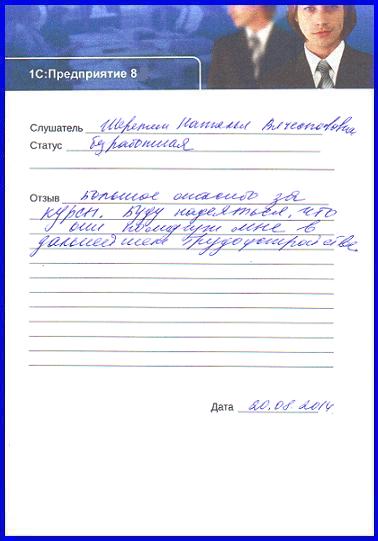 1С:Предприятие 8
Слушатель Наталья
Статус безработная
Отзыв Большое спасибо за
курсы. Буду надеяться, что
они помогут мне в
дальнейшем трудоустройстве
Дата 20.08.2014